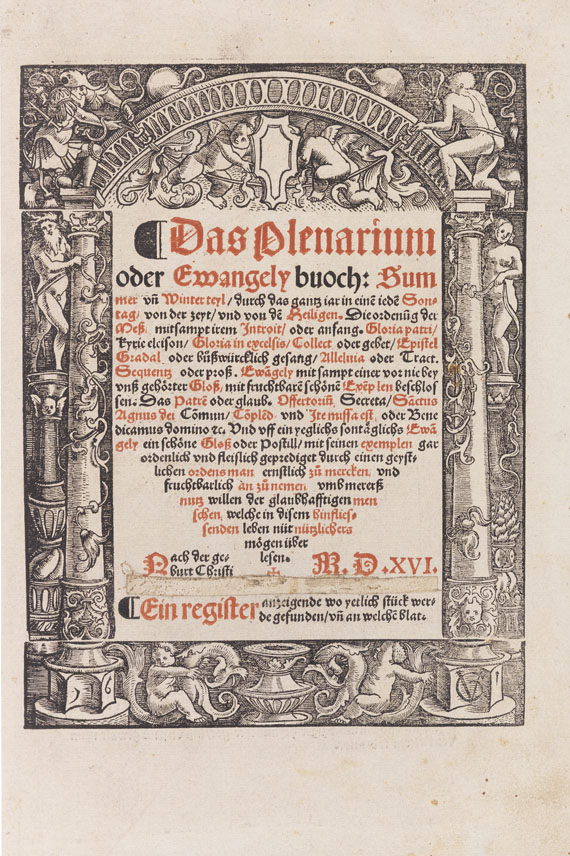 Das Plenarium
oder Ewangely buoch: Sum
mer vñ Winter teyl / durch das gantz iar in einē iedē Son-
tag / von der zeyt / vnd von dē Heiligen. Die ordenūg der
Meß. mitsampt irem Introit / oder anfang. Gloria patri /
Kyrie eleison / Gloria in excelsis / Collect oder gebet / Epistel
Gradal oder büßwürcklich gesang / Alleluia oder Tract.
Sequentz oder proß. Ewāgely mit sampt einer vor nie bey
vnß gehörter Gloß / mit fruchtbarē schönē Exēplen beschlos
sen. Das Patrē oder glaub. Offertoriū, Secreta / Sāctus
Agnus dei Cōmun / Cōplēd vnd Ite missa est, oder Bene
dicamus domino ꝛc. Vnd vff ein yeglichs sontāglichs Ewā
gely ein schöne Gloß oder Postill / mit seinen exemplen gar
ordenlich vnd fleislich geprediget durch einen geyst-
lichen ordensman ernstlich zů mercken, vnd
fruchtbarlich an zů nemen vmb mererß
nutz willen der glaubhafftigen men
schen, welche in disem hinflies-
senden leben nüt nützlichers
mögen über
lesen.
Nach der ge-
burt Christi M. D .XVI.
Ein register anzeigende wo yetlich stück wer-
de gefunden / vñ an welchē blat.
VG